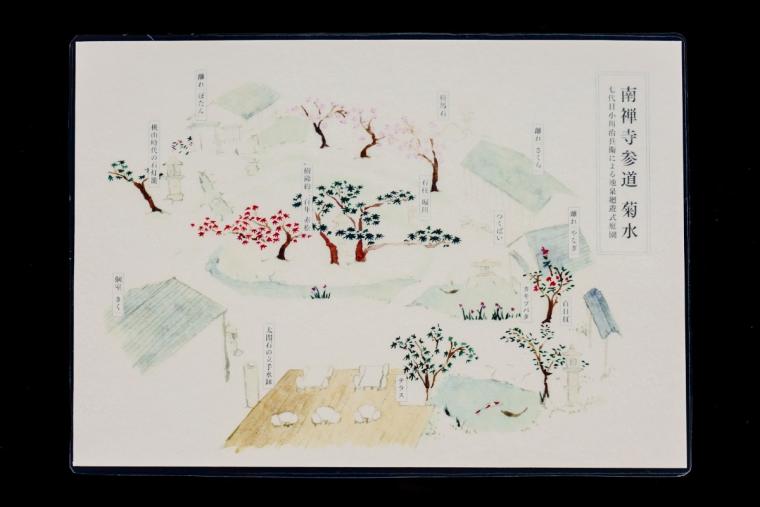 南禅寺参道 菊水
七代目小川治兵衛による池泉廻遊式庭園
離れ ぼたん
桃山時代の石灯籠
離れ さくら
つくばい
離れ やなぎ
カキツバタ
百日紅
個室 きく
太閤石の立手水鉢
テラス